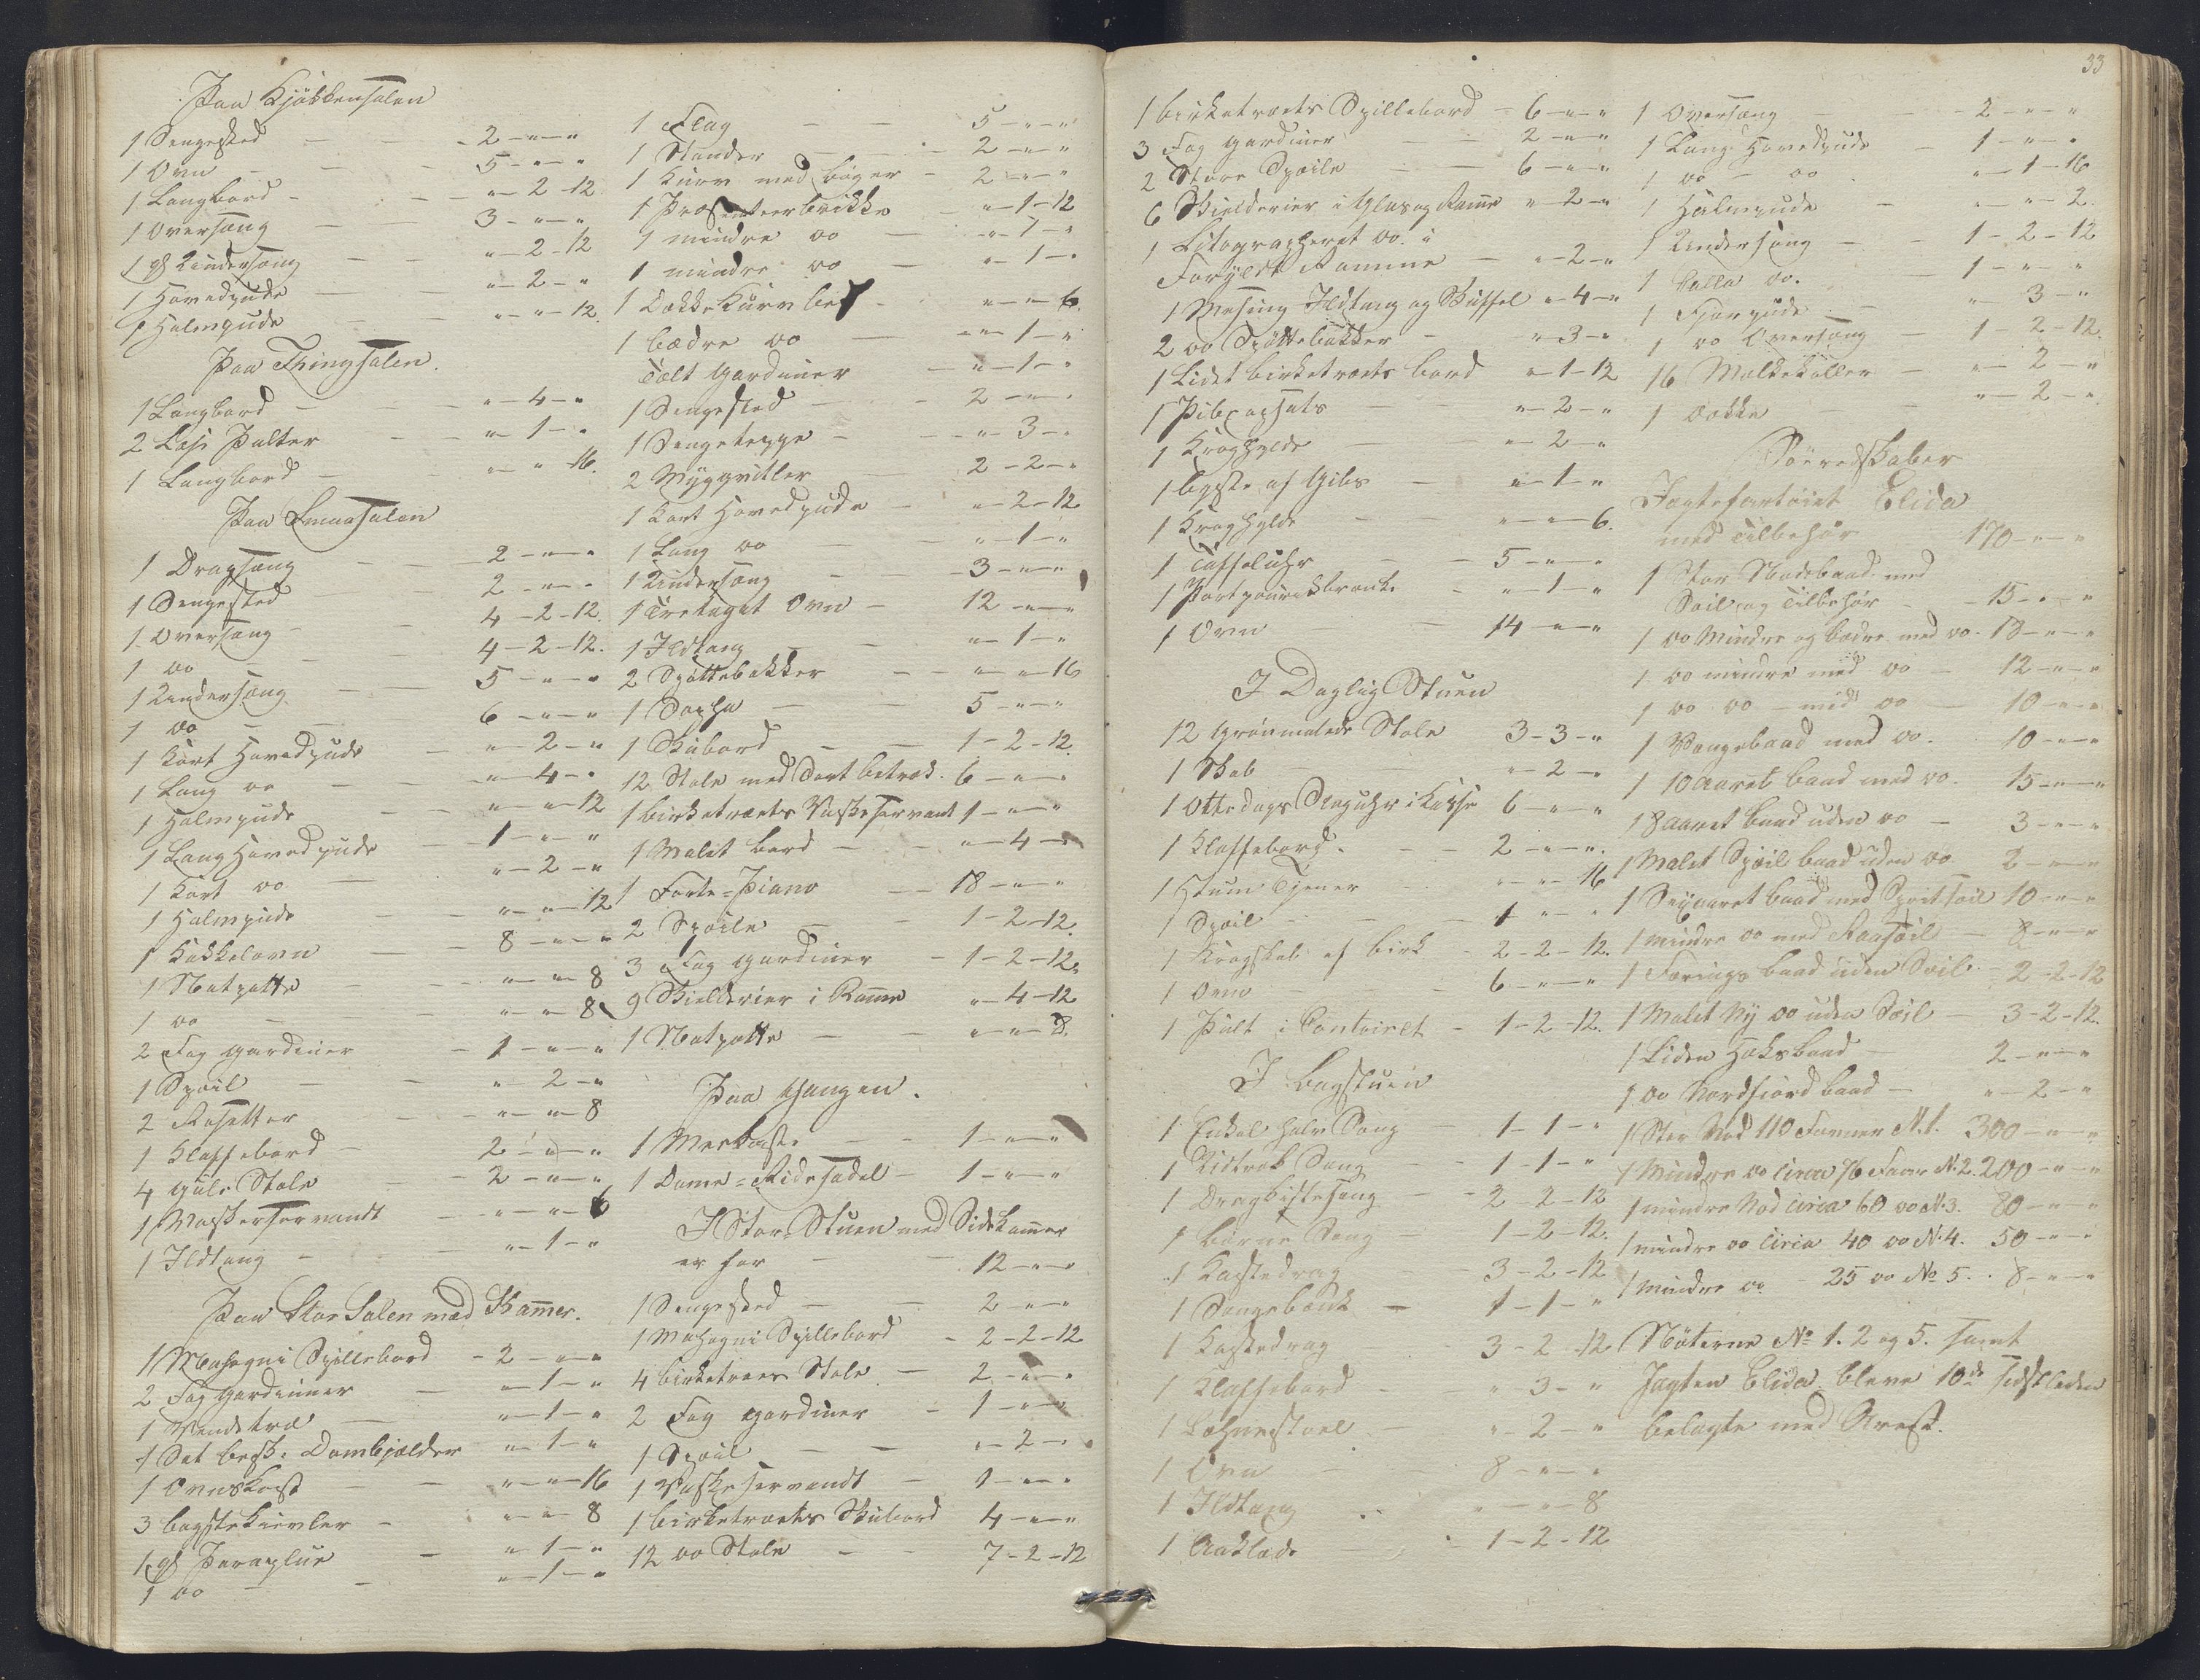 Paa Kjökkensalen
1 Sengested - - 2 - " - "
1 Ovn - - 5 - " - "
1 Langbord - - " - 2 - 12
1 Oversæng - 3 - " - "
1 gl Undersæng - - " - 2 - 12
1 Hovedpude - " - 2 - "
1 Halmpude - " - " - 12.
Paa Thingsalen.
1 Langbord - - " - 4 - "
2 Pulter - - " - 1 - "
1 Langbord - - " - " - 16.
Paa Smaasalen
1 Dragsæng - - 2 - " - "
1 Sengested - - 2 - " - "
1 Oversæng - - 4 - 2 - 12.
1 do - - 4 - 2 - 12.
1 Undersæng - - 5 - " - "
1 do - - 6 - " - "
1 Kort Hovedpude - " - 2 - "
1 Lang do - - " - 4 - "
1 Halmpude - - " - " - 12
1 Lang Hovedpude - 1 - " - "
1 Kort do - " - 2 - "
1 Halmpude - - " - " - 12
1 Kakkelovn - - 8 - " - "
1 Natpotte - - " - " - 8
1 do - - " - " - 8
2 Fag Gardiner - 1 - " - "
1 Speil - - " - 2 - "
2 Rosetter - - " - " - 8
1 Klaffebord - 2 - " - "
4 gule Stole - - 2 - " - "
1 Waskerservandt - " - " - 6
1 Ildtang - - " - 1 - "
Paa Stor Salen med Kammer.
1 Mahogni Spillebord - 2 - " - "
2 Fag Gardinner - " - 1 - "
1 Vendetræ - " - 1 - "
1 Sæt besk: Dombjælder " - 1 - "
1 Ovnskost - - " - " - 16
3 bagstekievler - " - " - 8
1 gl Paraplue - " - 1 - "
1 do - - " - 1 - "
1 Flag - - 5 - " - "
1 Stander - - 2 - " - "
1 Kurv med bøger - 2 - " - "
1 Præsenteerbrikke - " - 1 - 12
1 mindre do - " - 1 - "
1 mindre do - " - 1 - "
1 Dække Kurv - " - " - 6.
1 bædre do - " - 1 - "
Telt Gardiner - " - 1 - "
1 Sengested - - 2 - " - "
1 Sengeteppe - - " - 3 - "
2 2 - 2 - "
1 Kort Hovedpude - " - 2 - 12
1 Lang do - - " - 1 - "
1 Undersæng - - 3 - " - "
1 Treetaget Ovn - 12 - " - "
1 Ildtang - " - 1 - "
2 Spøttebakker - - " - " - 16
1 Sopha - 5 - " - "
1 Skibord - - 1 - 2 - 12.
12 Stole med Sort betræk. 6 - " - "
1 birketræets Vaskeservant 1 - " - "
1 Malet bord - - " - 4 - "
1 Forte=Piano - 18 - " - "
2 Speile - - 1 - 2 - 12.
3 Fag Gardiner - 1 - 2 - 12.
9 Skielderier i Ramme " - 4 - 12
1 Natpotte - - " - " - 8.
Paa Gangen.
1 - - 1 - " - "
1 Dame=Ridesadel - 1 - " - "
I Stor Stuen med Sidekammer
er for - - 12 - " - "
1 Sengested - - 2 - " - "
1 Mahogni Spillebord - 2 - 2 - 12
4 birketræes Stole - 2 - " - "
2 Fag Gardiner - 1 - " - "
1 Speil - - " - 2 - "
1 Vaskeservandt - 1 - " - "
1 birketræets Skibord 4 - " - "
12 do Stole - - 7 - 2 - 12
33
1 birketræets Spillebord - 6 - " - "
3 Fag Gardiner - - 2 - " - "
2 Store Speile - - 6 - " - "
6 Skielderier i Glas og Ramme " - 2 - "
1 Litographeret do. i
Forgyldt Ramme - " - 2 - "
1 Mesing Ildtang og Skuffel " - 4 - "
2 do Spøttebakker - " - 3 - "
1 Lidet birketræets bord " - 1 - 12
1 Pibeopsats - - " - 2 - "
1 Kroghylde " - 2 - "
1 byste af Gibs - " - 1 - "
1 Kroghylde - - " - " - 6.
1 Taffeluhr - - 5 - " - "
1 - " - 1 - "
1 Ovn - 14 - " - "
I Daglig Stuen
12 Grönmalede Stole 3 - 3 - "
1 Skab - " - 2 - "
1 Ottedags Sleguhr i Kasse 6 - " - "
1 Klaffebord. - - 2 - " - "
1 Stum Tjener - " - " - 16
1 Speil - - 1 - " - "
1 Krogskab af birk - 2 - 2 - 12.
1 Ovn - 6 - " - "
1 Pult i Contoiret - 1 - 2 - 12.
I bagstuen
1 Enkel halv Seng - 1 - 1 - "
1 Udtræk Seng - - 1 - 1 - "
1 Dragkisteseng - - 2 - 2 - 12
1 börne Seng - 1 - 2 - 12.
1 Kastedrag - 3 - 2 - 12
1 Sengebænk - 1 - 1 - "
1 Kastedrag - 3 - 2 - 12
1 Klaffebord - " - 3 - "
1 Lehnestoel - " - 2 - "
1 Ovn - 8 - " - "
1 Ildtang " - " - 8
1 Aaklæde 1 - 2 - 12
1 Oversæng - - 2 - " - "
1 Lang Hovedpude - 1 - " - "
1 do - do - " - 1 - 16
1 Halmpude - " - " - 2.
1 Undersæng - - 1 - 2 - 12
1 do. - 1 - " - "
1 Fjærpude - " - 3 - "
1 do Oversæng - 1 - 2 - 12.
16 Melkekoller - " - 2 - "
1 Dække - - " - 2 - "
Söeredskaber
Jagtefartöiet Elida
med Tilbehör 170 - " - "
1 Stor Notebaad med
Seil og Tilbehör - - 15 - " - "
1 do Mindre og bædre med do. 18 - " - "
1 do mindre med do - 12 - " - "
1 do do - med do - 10 - " - "
1 Vengebaad med do. 10 - " - "
1 10 Aaret baad med do. 15 - " - "
1 8 aaret baad uden do - 3 - " - "
1 Malet Speilbaad uden do 2 - " - "
1 Sexaaret baad med Sprit seil 10 - " - "
1 mindre do med Raaseil - 8 - " - "
1 Færings baad uden Seil - 2 - 2 - 12
1 Malet Ny do uden Seil - 3 - 2 - 12.
1 Liden baad - 2 - " - "
1 do Nordfiord baad - " - 2 - "
1 Stor Nod 110 Favner N. 1. 300 - " - "
1 Mindre do circa 76 Favne N. 2. 200 - " - "
1 mindre Nod circa 60 do N. 3. 80 - " - "
1 mindre do circa 40 do N. 4. 50 - " - "
1 mindre do - 25 do No 5. 8 - " - "
Nöterne No 1. 2 og 5. samt
Jagten Elida bleve 10de sidstleden
belagte med Arrest.